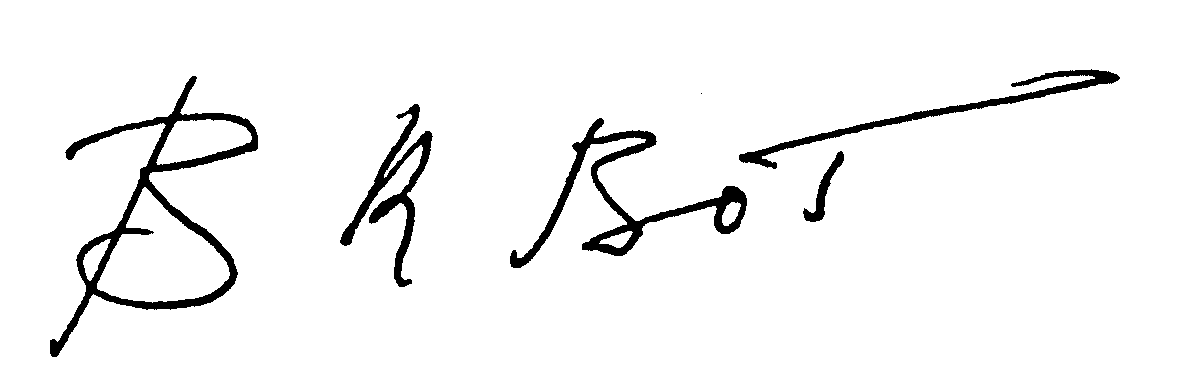 B R Bot